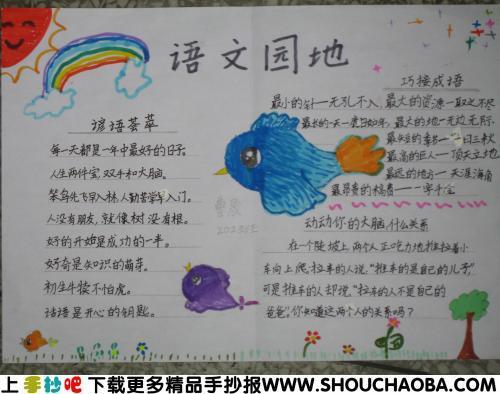 语文园地
谚语荟萃
每一天都是一年中最好的日子。
人生两件宝,双手和大脑。
笨鸟先飞早入林,人勤苦学早入门。
人没有朋友,就像树没有根。
好的开始是成功的一半。
好奇是知识的萌芽。
初生牛犊不怕虎。
话语是开心的钥匙。
巧接成语
最小的针—无孔不入,最大的资源—取之不尽
最长的一天—度日如年,最大的地—无边无际
最短的季节—一日三秋
最高的巨人—顶天立地
最远的地方—天涯海角
最昂贵的稿费—一字千金
动动你的大脑,什么关系
在一个陡坡上,两个人正吃力地推拉着小
车向上爬,拉车的人说:“推车的是自己的儿子”
可是推车的人却说:“拉车的人不是自己的
爸爸”,你知道这两个人的关系吗?
上手抄吧 下载更多精品手抄报WWW.SHOUCHAOBA.COM